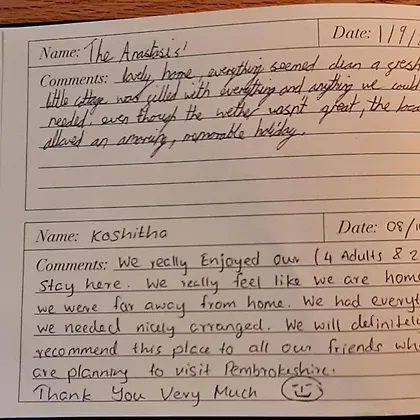 Name: The Anastasis' Date: 1/9/
Comments: lovely home, everything seemed clean a fresh
little cottage was filled with everything and anything we could
needed. even though the wether wasn't great, the loca
allowed an amazing, memorable holiday.
Name: Kashitha Date: 08/10
Comments: We really Enjoyed our (4 Adults & 2
Stay here. We really feel like we are home
we were far away from home. We had everyt
we needed nicely arranged. We will definitele
recommend this place to all our friends who
are planning to visit Pembrokshire.
Thank You Very Much